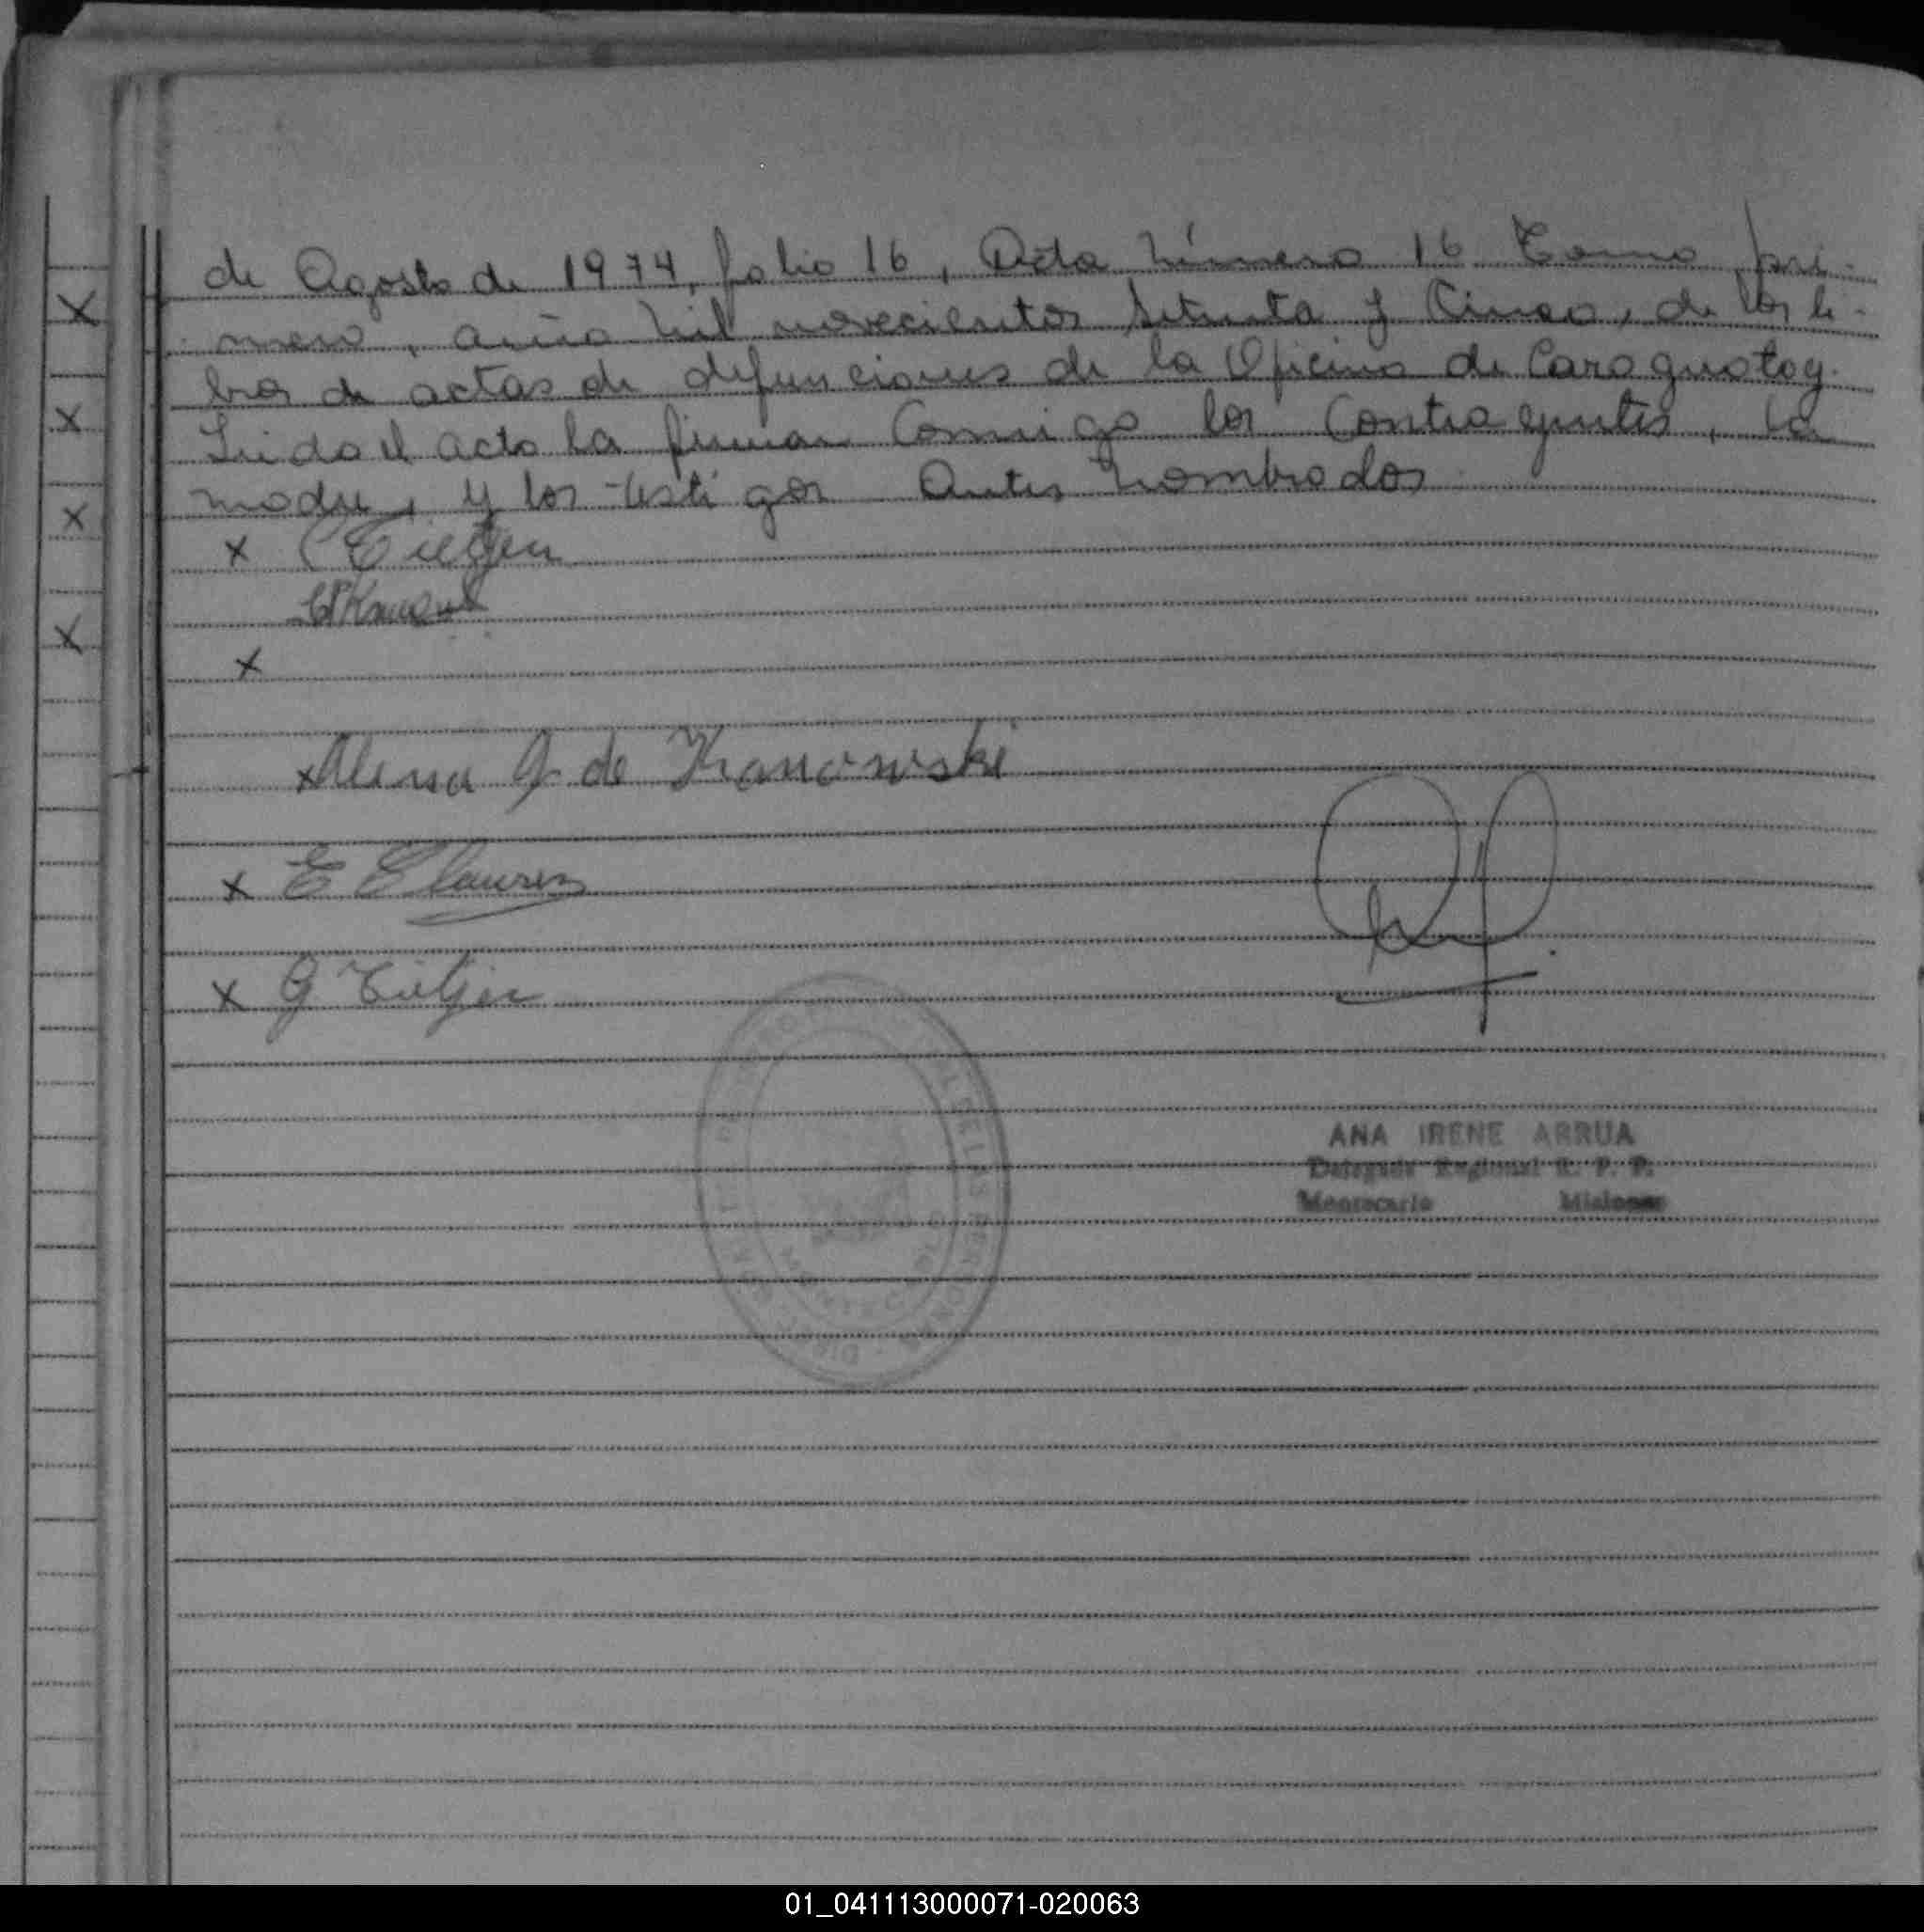 de Agosto de 1974, folio 16, Acta Número 16 Tomo pri-
mero, año mil novecientos Setenta y Cinco, de los li-
bros de actas de defunciones de la Oficina de Caraguatay.
Leida el acta la firman Conmigo los Contrayentes, la
madre, y los testigos Antes Nombrados
x
x
x G. de Kranowski
x E
x G
ANA IRENE ARRUA
Delegada Regional R. P. P.
Montecarlo Misiones
01_041113000071-020063